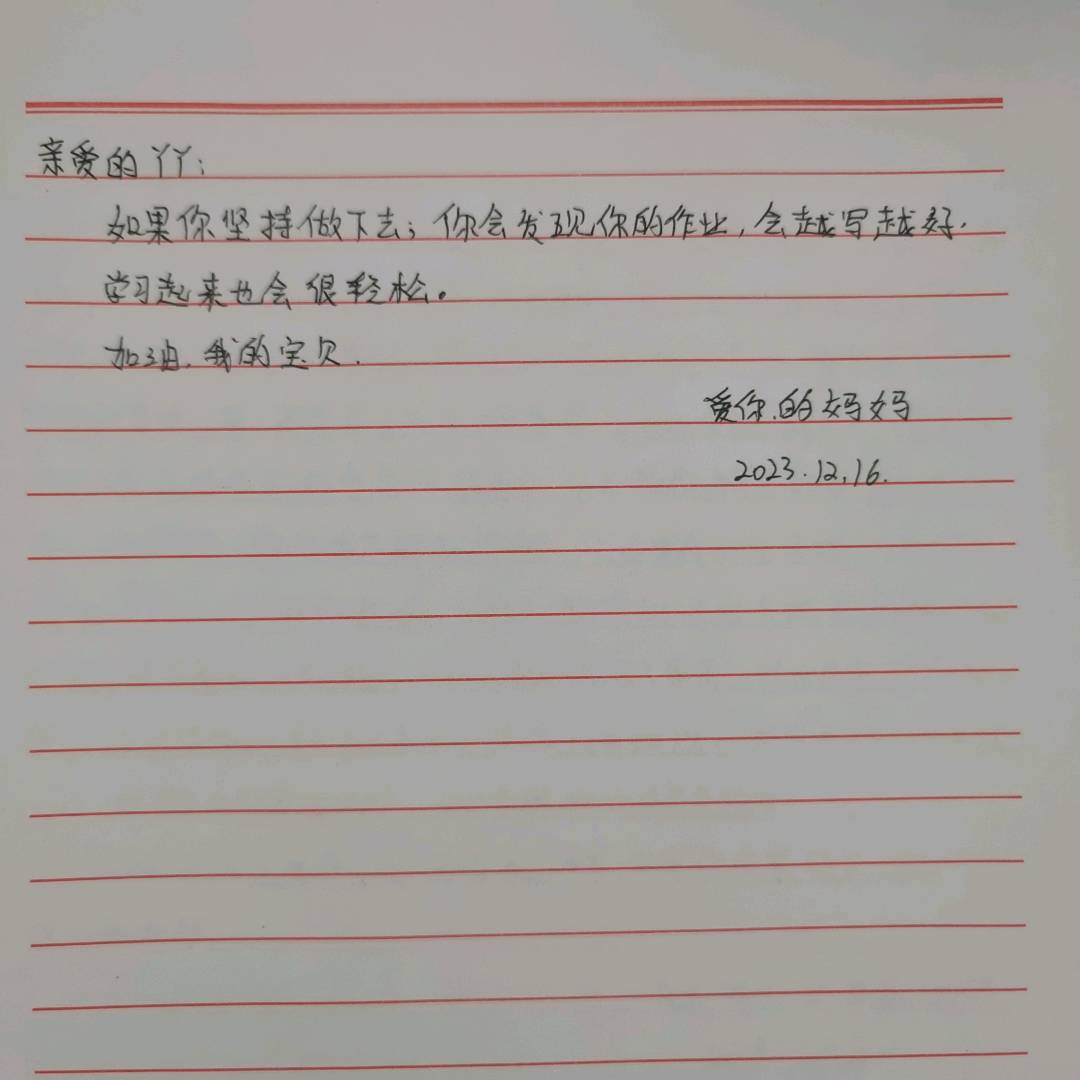 亲爱的丫丫：
如果你坚持做下去；你会发现你的作业，会越写越好.
学习起来也会很轻松。
加油，我的宝贝.
爱你的妈妈
2023.12.16.